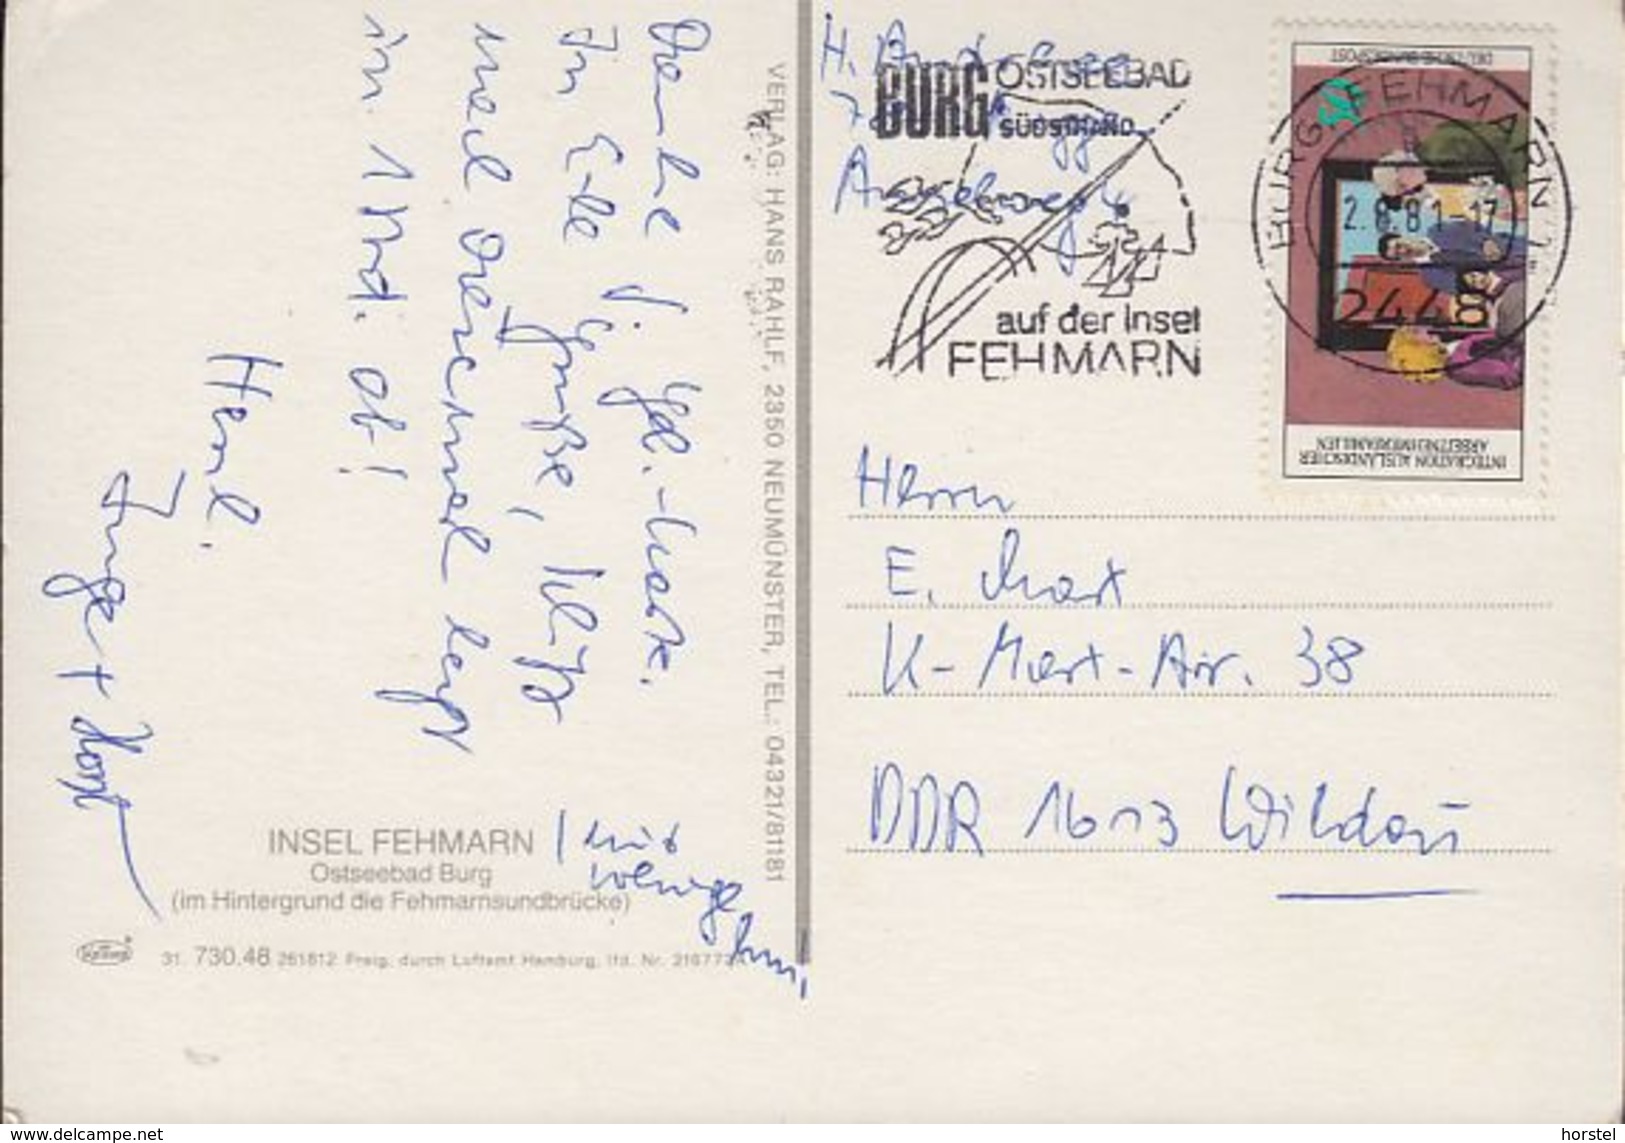 Danke f. Geb.-Karte.
In Eile Grüße, Schiff
nach legt
in 1 Std. ab!
Herzl.
Inge + Horst
mit
wenige
VERLAG: HANS RAHLF, 2350 NEUMÜNSTER, TEL.: 04321/81181
INSEL FEHMARN
Ostseebad Burg
(im Hintergrund die Fehmarnsundbrücke)
31. 730.48 261812 Freig. durch Luftamt Hamburg, lfd. Nr.
H.
BURG OSTSEEBAD
SÜDSTRAND
auf der Insel
FEHMARN
DEUTSCHE BUNDESPOST
INTEGRATION AUSLÄNDISCHER
ARBEITNEHMERFAMILIEN
BURG, FEHMARN
2.8.81-17
2448
Herrn
E.
K-Marx-Str. 38
DDR 1613 Wildau
www.delcampe.net
horstel